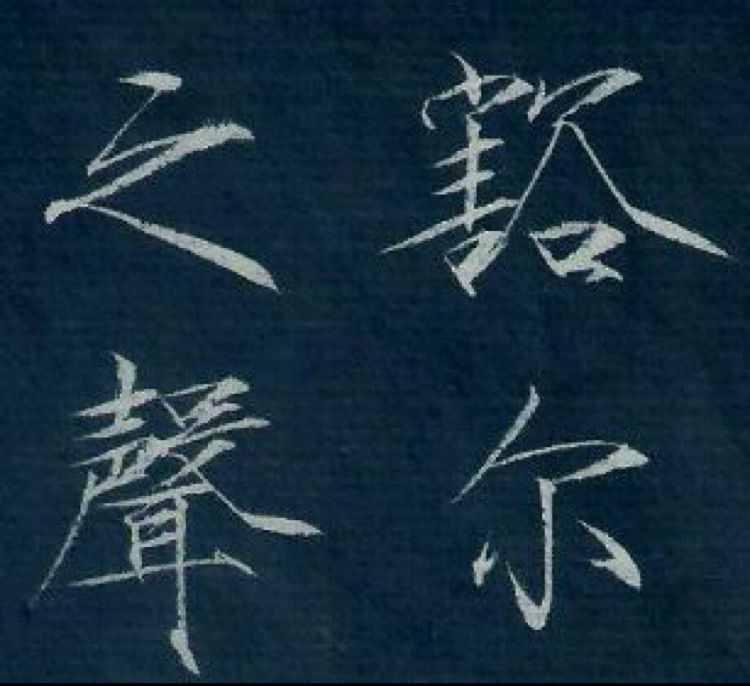 豁尔
之聲